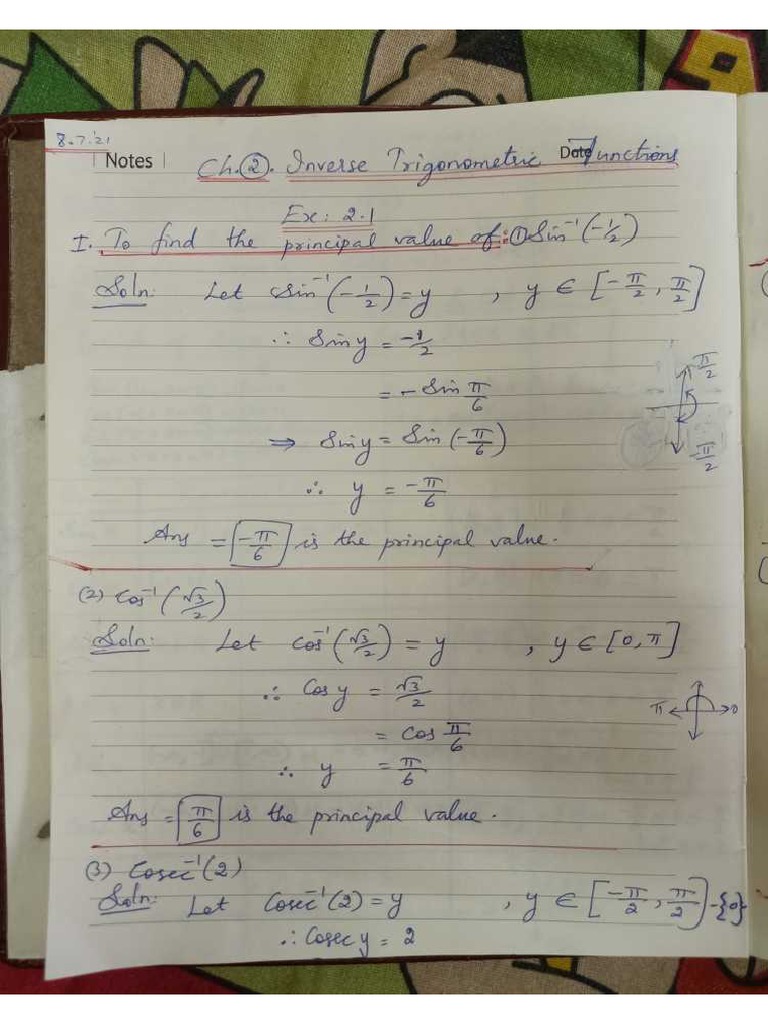 8.7.'21
Notes
Date
Ch.②. Inverse Trigonometric Functions
Ex: 2.1
I. To find the principal value of: ① Sin⁻¹(-1/2)
Soln: Let Sin⁻¹(-1/2) = y , y ∈ [-π/2, π/2]
∴ Sin y = -1/2
= - Sin π/6
π/2
⇒ Sin y = Sin (-π/6)
-π/2
∴ y = -π/6
Ans = -π/6 is the principal value.
(2) Cos⁻¹(√3/2)
Soln: Let Cos⁻¹(√3/2) = y , y ∈ [0, π]
∴ Cos y = √3/2
π 0
= Cos π/6
∴ y = π/6
Ans = π/6 is the principal value.
(3) Cosec⁻¹(2)
Soln: Let Cosec⁻¹(2) = y , y ∈ [-π/2, π/2] - {0}
∴ Cosec y = 2